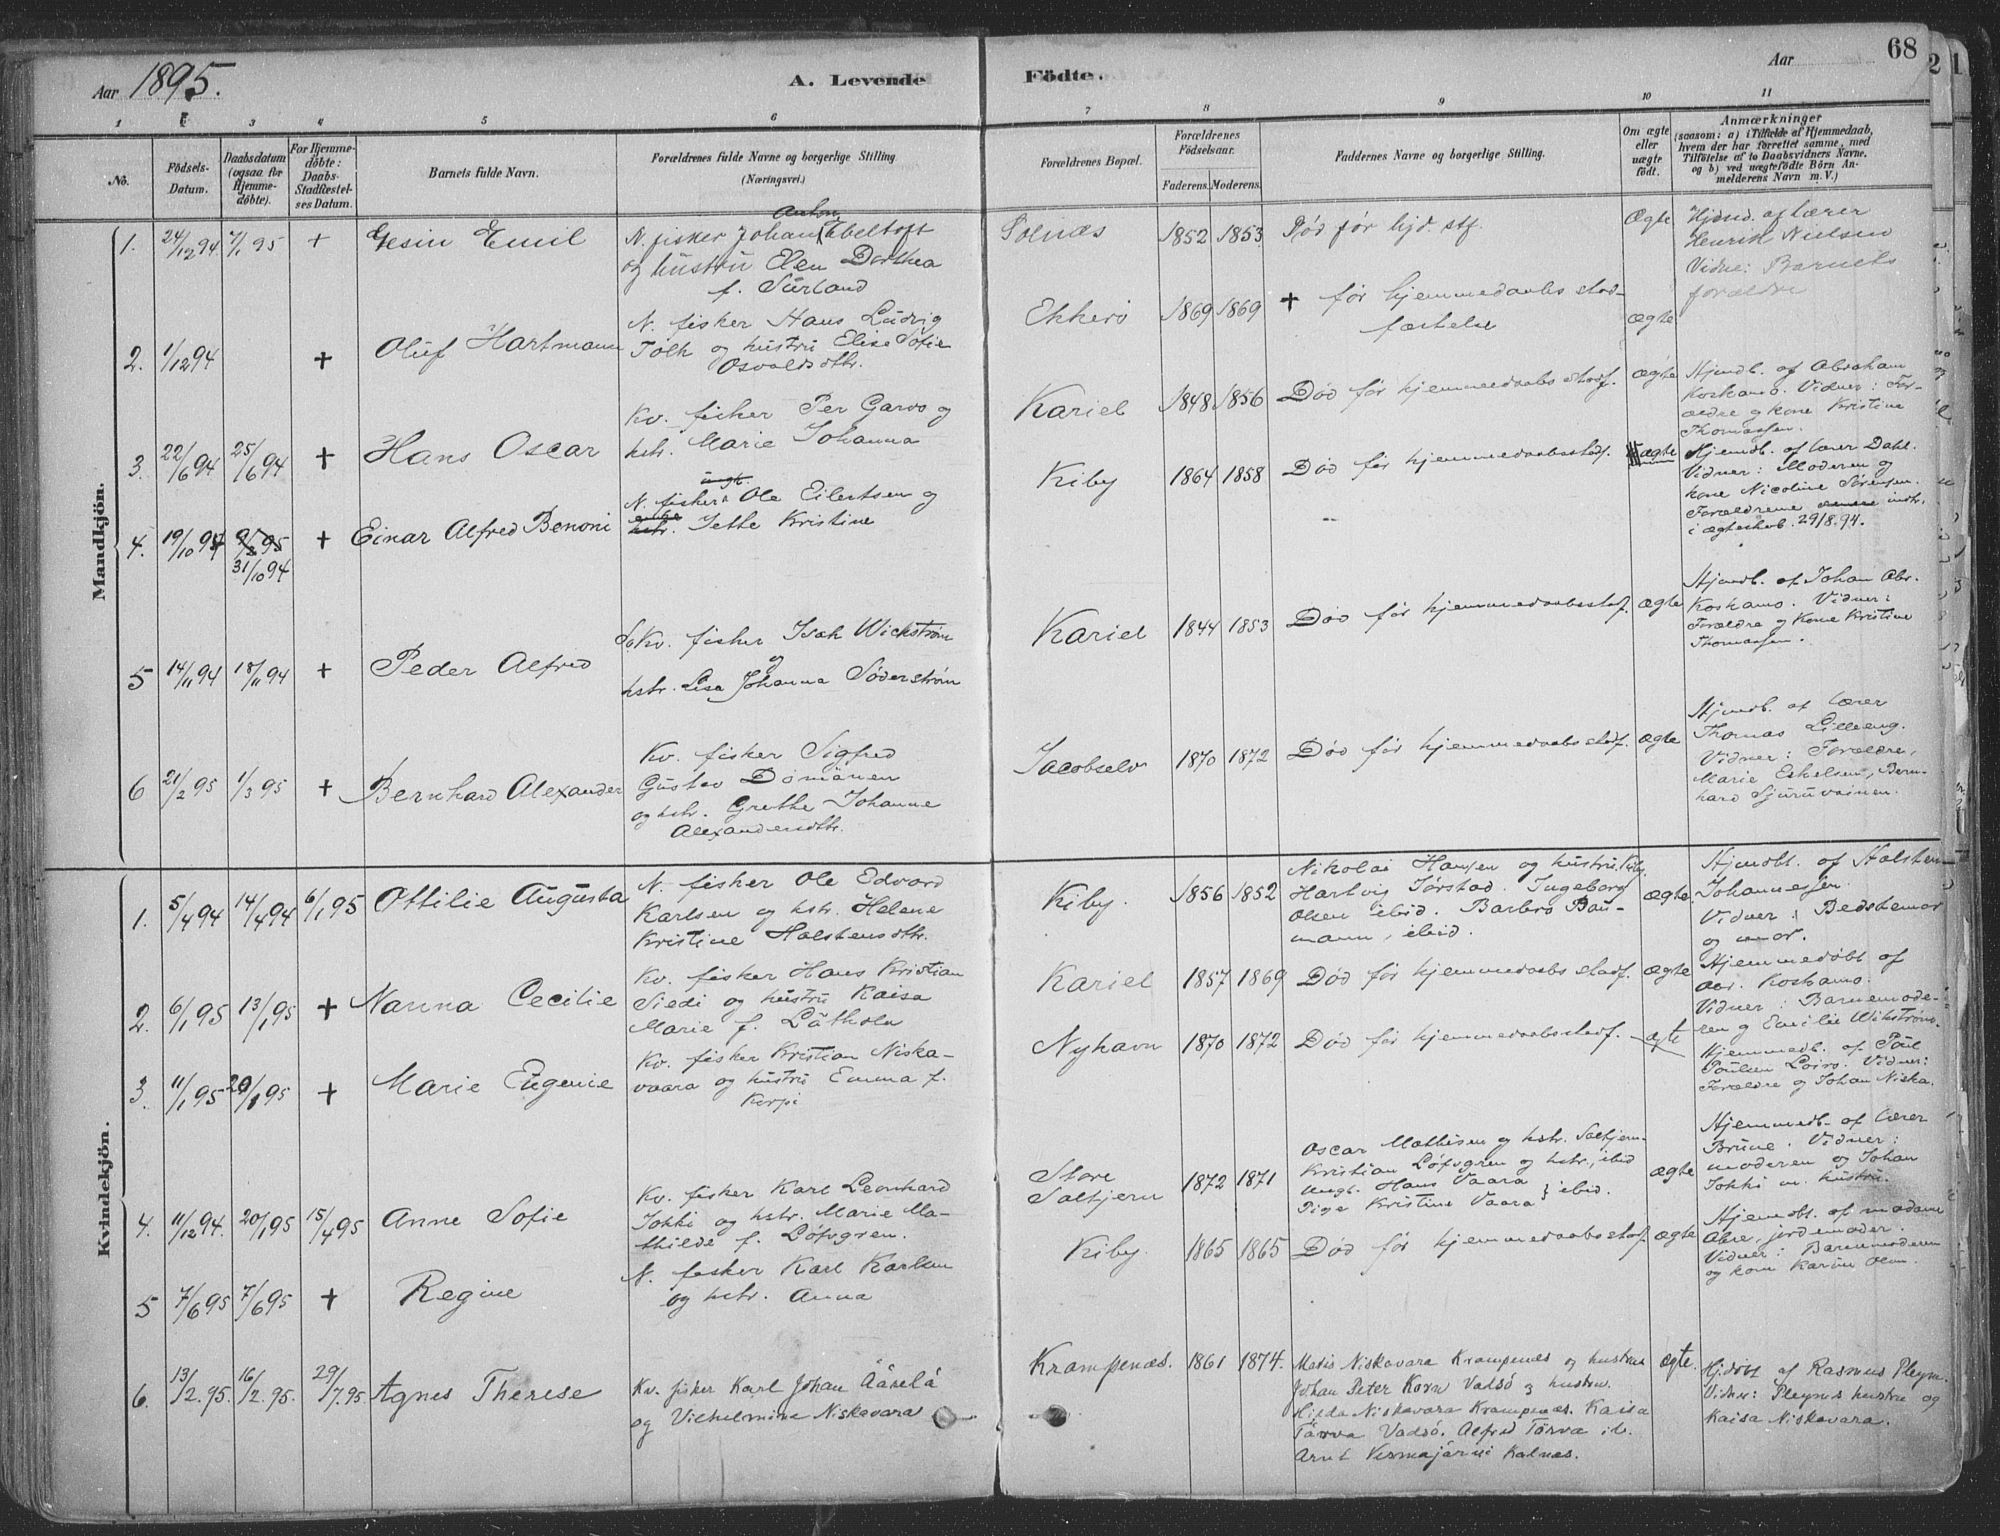 Aar 1895.
A. Levende
Födte.
Aar
68
1
3
4
5
6
7
8
9
10
11
No.
Födsels-
Datum.
Daabsdatum
(ogsaa for
Hjemme-
döbte).
For Hjemme-
döbte:
Daabs-
Stadfæstel-
ses Datum.
Barnets fulde Navn.
Forældrenes fulde Navne og borgerlige Stilling
(Næringsvei.)
Forældrenes Bopæl.
Forældrenes
Födselsaar.
Faderens. Moderens.
Faddernes Navne og borgerlige Stilling.
Om ægte
eller
uægte
födt.
Anmærkninger
(saasom: a) i Tilfælde af Hjemmedaab,
hvem der har forrettet samme, med
Tilföielse af to Daabsvidners Navne,
og b) ved uægtefödte Börn An-
melderens Navn m. V.)
Mandkjön.
1. 24/12 94 7/1 95 +
Gesin Emil
Anton
N. fisker Johan Ebeltoft
og hustru Elen Dorthea
f. Sürland
1852 1853
Død før hjd. stf.
Ægte
Hjdød. af lærer
Henrik Nielsen
Vidne: Barnets
forældre
2. 1/12 94 +
Oluf Hartmann
N. fisker Hans Ludvig
Tolk og hustru Elise Sofie
Osvaldsdtr.
Ekkerö
1869 1869
+ før hjemmedaabs stad-
fæstelse
ægte
3. 22/6 94 25/6 94 +
Hans Oscar
Kv. fisker Per Garvo og
hstr. Marie Johanna
Kariel
1848 1856
Død før hjemmedaabs stadf.
ægte
Hjemdb. af Abraham
Koskamo. Vidner: For-
ældre og kone Kristine
Thomassen.
4. 19/10 94 31/10 94 +
Einar Alfred Benoni
ungk.
N. fisker Ole Eilertsen og
hstr. Jette Kristine
Kiby
1864 1858
Død før hjemmedaabsstadf.
ægte
Hjemdb. af lærer Dahl.
Vidner: Moderen og
kone Nicoline Sørensen.
Forældrene indtr.
i ægteskab. 29/8.94.
5 14/11 94 18/11 94 +
Peder Alfred
Kv. fisker Isak Wickstrøm
og
hstr. Lisa Johanna Söderström
Kariel
1844 1853
Død før hjemmedaabsstadf.
ægte
Hjemdb. af Johan Abr.
Koskamo. Vidner:
Forældre og Kone Kristine
Thomassen.
6 21/2 95 1/3 95 +
Bernhard Alexander
Kv. fisker Sigfred
Gustav Domänen
og hstr. Grethe Johanne
Alexandersdtr.
Jacobselv
1870 1872
Død før hjemmedaabsstadf.
ægte
Hjemdb. af lærer
Thomas Lilleeng.
Vidner: Forældre,
Marie Eskelsen, Bern-
hard Sjuruvainen.
Kvindekjön.
1. 5/4 94 14/4 94 6/1 95
Ottilie Augusta
N. fisker Ole Edvard
Karlsen og hstr. Helene
Kristine Holstensdtr.
Kiby.
1856 1852
Nikolai Hansen og hustru Kiby.
Hartvig Tørstad. Ingeborg
Olsen ibid. Barbro Bau-
mann, ibid.
ægte.
Hjemdbt. af Holsten
Johannessen.
Vidner: Bedstemor
og mor.
2. 6/1 95 13/1 95 +
Nanna Cecilie
Kv. fisker Hans Kristian
Siedi og hustru Kaisa
Marie f. Låthola
Kariel
1857 1869
Død før hjemmedaabs stadf.
ægte
Hjemmedøbt af
Koskamo.
Vidner: Barnemode-
ren og Emilie Wikstrøm.
3. 11/1 95 20/1 95 +
Marie Eugenie
Kv. fisker Kristian Niska-
vaara og hustru Emma f.
Korpi
Nyhavn
1870 1872
Død før hjemmedaabsstadf.
ægte
Hjemmedb. af Poul
Poulsen Loiro. Vidner:
Forældre og Johan Niska.
4. 11/12 94. 20/1 95 15/4 95
Anne Sofie
Kv. fisker Karl Leonhard
Jokki og hstr. Marie Ma-
thilde f. Löfvgren.
Store
Saltjern
1872 1871
Oscar Mathisen og hstr. Saltjern.
Kristian Löfvgren og hstr., ibid
Ungk. Hans Vaara
Pige Kristine Vaara } ibid.
ægte
Hjemmedb. af lærer
Brune. Vidner:
moderen og Johan
Jokki m. hustru.
5 7/6 95 7/6 95 +
Regine
N. fisker Karl Karlsen
og hstr. Anna
Kiby.
1865 1865
Død før hjemmedaabsstadf.
ægte
Hjemdbt. af madame
Abre, jordemoder.
Vidner: Barnemoderen
og kone Karine Olsen.
6. 13/2.95. 16/2.95. 29/7.95.
Agnes Therese
Kv. fisker Karl Johan Äärelä
og Vilhelmine Niskavara
Krampenæs.
1861 1874.
Matis Niskavara Krampenes og hustru
Johan Peter Korva Vadsö og hustru.
Hilda Niskavara Krampenæs. Kaisa
Törva Vadsö. Alfred Törva ib.
Arnt Vesmajärvi Kalnæs.
ægte.
Hjdöbt af Rasmus Pleym.
Vidner: Pleyms hustru og
Kaisa Niskavara.